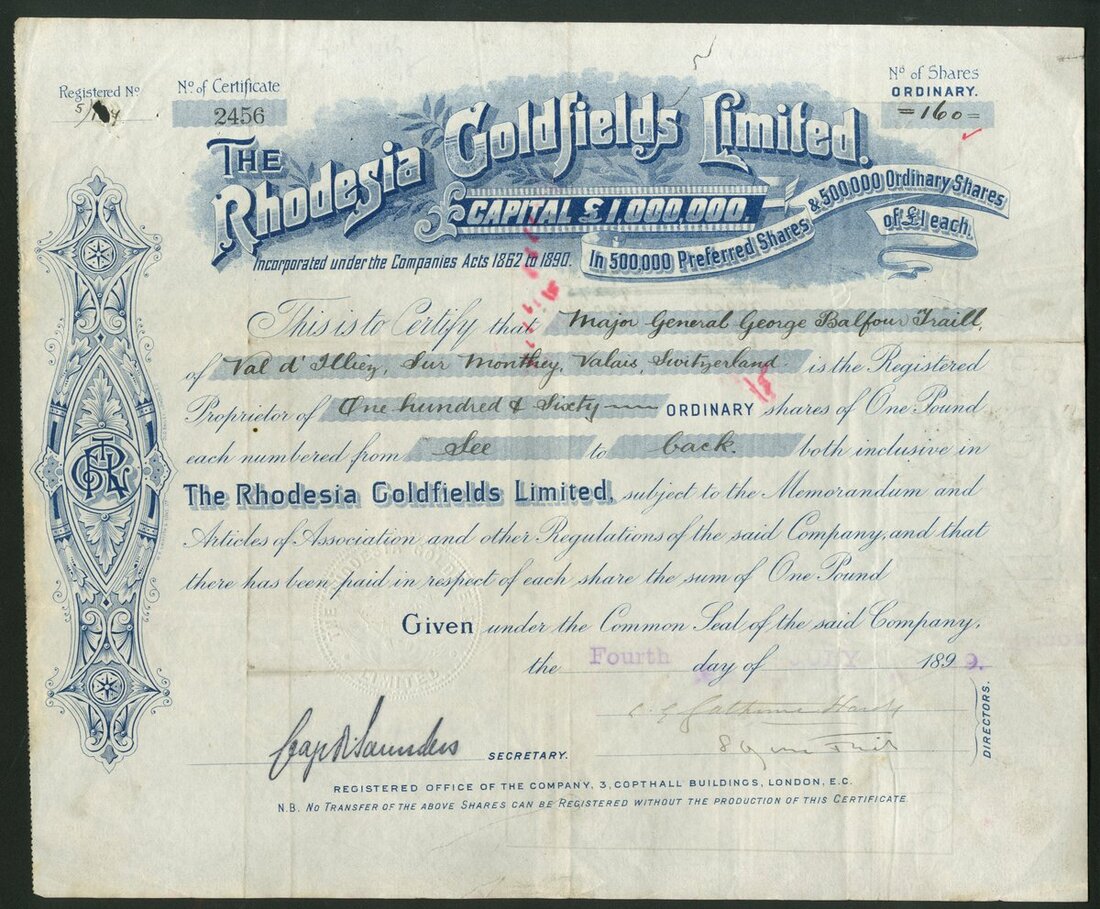 Registered No
No of Certificate
2456
No of Shares
ORDINARY.
=160=
The Rhodesia Goldfields Limited.
CAPITAL £1,000,000.
In 500,000 Preferred Shares & 500,000 Ordinary Shares
of £1 each.
Incorporated under the Companies Acts 1862 to 1890.
This is to Certify that Major General George Balfour Traill,
of Val d' Illiez, Sur Monthey, Valais, Switzerland. is the Registered
Proprietor of One hundred & Sixty ORDINARY shares of One Pound
each numbered from See to back. both inclusive in
The Rhodesia Goldfields Limited, subject to the Memorandum and
Articles of Association and other Regulations of the said Company, and that
there has been paid in respect of each share the sum of One Pound
Given under the Common Seal of the said Company,
the Fourth day of JULY 1899.
SECRETARY.
DIRECTORS.
REGISTERED OFFICE OF THE COMPANY, 3, COPTHALL BUILDINGS, LONDON, E.C.
N.B. No Transfer of the above Shares can be Registered without the production of this Certificate.